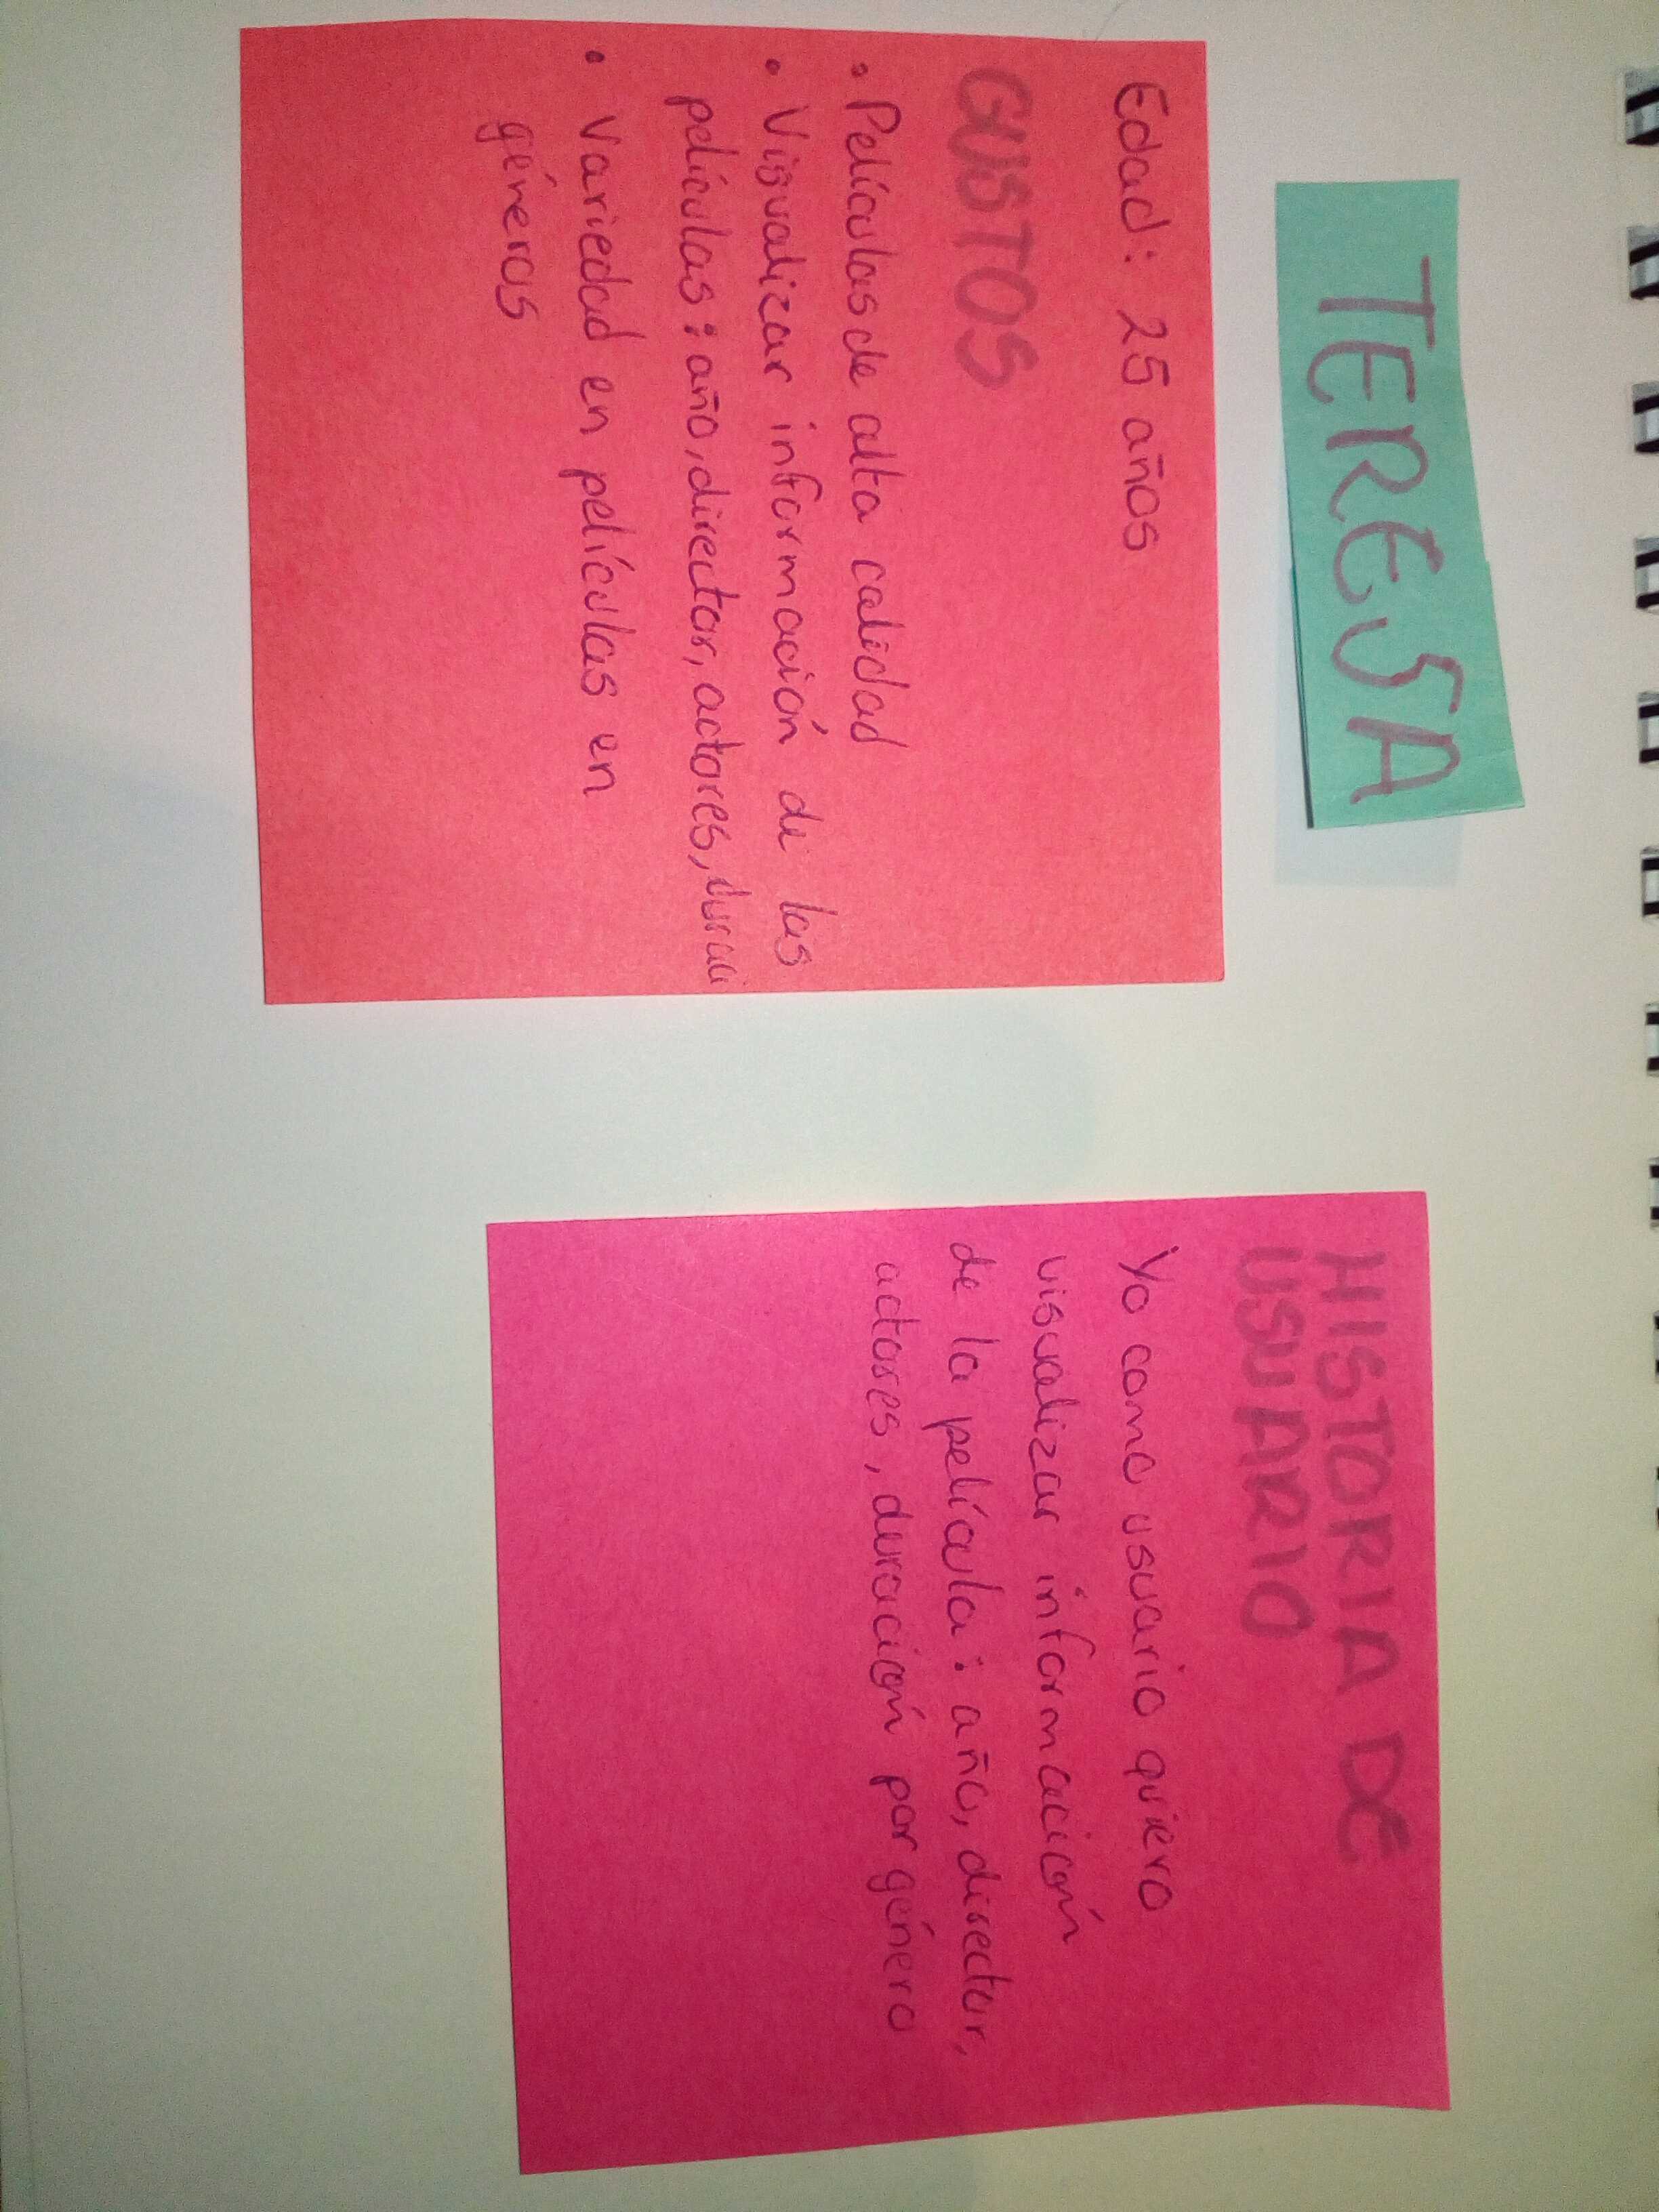 TERESA
Edad: 25 años
GUSTOS
• Películas de alta calidad
• Visualizar información de las
películas: año, director, actores, duraci
• Variedad en películas en
géneros
HISTORIA DE
USUARIO
Yo como usuario quiero
visualizar información
de la película: año, director,
actores, duración por género